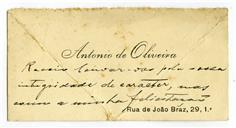 Antonio de Oliveira
louvar-vos pela vossa
integridade de caracter, mas
com a minha felicitação
Rua de João Braz, 29, 1.º